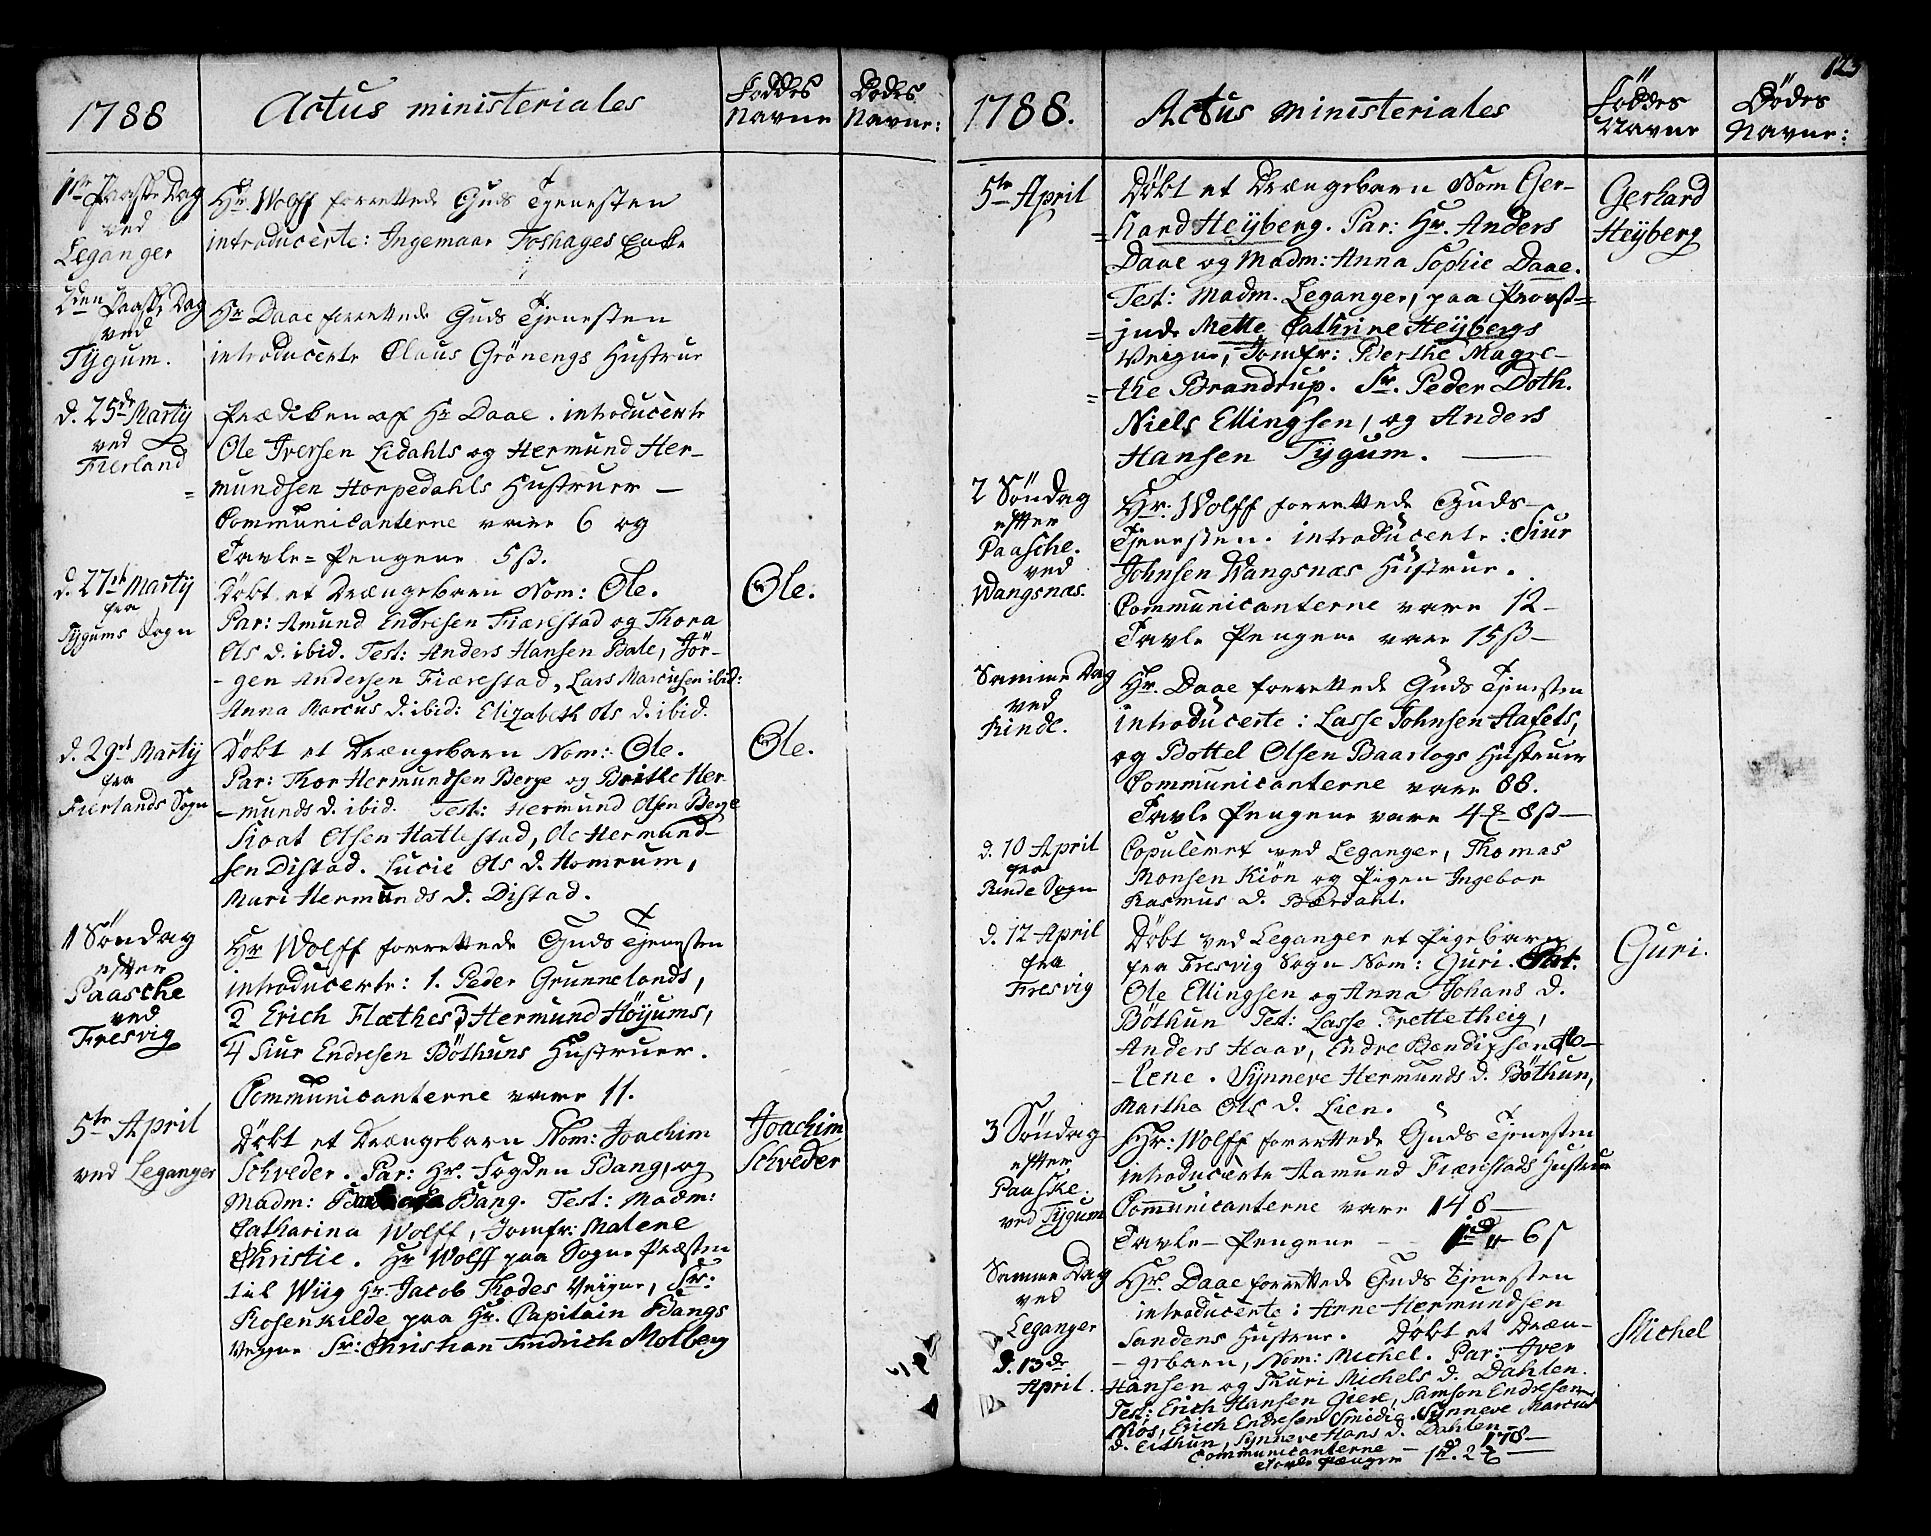 1788
Actus ministeriales
Föddes
Navne
Dödes
Navne:
1te Paaske Dag
ved
Leganger
Hr. Wolff forrettede Guds Tjenesten
introducerte: Ingemaar Toshages Enke
2den Paaske Dag
ved
Tygum.
Hr Daae forrettede Guds Tjenesten
introducerte Claus Grönengs Hustrue
d. 25de Marty
ved
Fierland
Prædiken af Hr Daae. introducerte
Ole Iversen Lidahls og Hermund Her-
mundsen Horpedahls Hustruer –
Communicanterne vare 6 og
Tavle-Pengene 5ß.
d. 27de Marty
fra
Tygums Sogn
Döbt et Drængebarn Nom: Ole.
Par: Amund Endresen Fiærestad og Thora
Ols d. ibid. Test: Anders Hansen Bale, Jör-
-gen Andersen Fiærestad, Lars Marcusen ibid:
Anna Marcus d. ibid: Elizabeth Ols d. ibid.
Ole.
d. 29de Marty
fra
Fierlands Sogn
Döbt et Drængebarn Nom: Ole.
Par: Thor Hermundsen Berge og Brithe Her-
-munds d. ibid. Test: Hermund Olsen Berge
Sioat Olsen Hatlestad, Ole Hermund-
sen Distad. Lucie Ols d. Homrum,
Mari Hermunds d. Distad.
Ole.
1 Söndag
efter
Paasche
ved
Fresvig
Hr Wolff forrettede Guds Tjenesten
introducerte: 1. Peder Grunnelands,
2 Erich Flæthes 3 Hermund Höyums,
4 Siur Endresen Böthuns Hustruer.
Communicanterne vare 11.
5te April
ved Leganger
Döbt et Drængebarn Nom: Joachim
Schreder. Par: Hr. Fogden Bang, og
Madm: Bang. Test: Madm:
Catharina Wolff, Jomfr: Malene
Christie. Hr Wolff paa Sogne Præsten
til Wiig Hr. Jacob Thodes Veigne, Sr:
Rosenkilde paa Hr. Capitain Bangs
Vegne Sr: Christian Fridrich Molberg
Joachim
Schreder
123
1788.
Actus ministeriales
Föddes
Navne
Dödes
Navne:
5te April
Döbt et Drængebarn Nom Ger-
=hard Heyberg. Par: Hr. Anders
Daae og Madm: Anna Sophie Daae.
Test: Madm. Leganger, paa Provst=
=inde Mette Cathrine Heybergs
Veigne, Jomfr: Berthe Magre-
=the Brandrup. Sr. Peder Doth.
Niels Ellingsen, og Anders
Hansen Tygum.
Gerhard
Heyberg
2 Söndag
efter
Paasche.
ved
Wangsnæs.
Hr. Wolff forrettede Guds-
Tjenesten. introducerte: Siur
Johnsen Wangsnæs Hustrue.
Communicanterne vare 12–
Tavle Pengene vare 15ß–
Samme Dag
ved
Rinde.
Hr. Daae forrettede Guds Tjenesten
introducerte: Lasse Johnsen Aafets,
og Bottel Olsen Baarlogs Hustruer
Communicanterne vare 88.
Tavle Pengene vare 4 8ß–
d. 10 April
fra
Rinde Sogn
Copuleret ved Leganger, Thomas
Monsen Kiön og Pigen Ingebor
Rasmus d. Bærdahl.
d. 12 April
fra
Fresvig
Döbt ved Leganger et Pigebarn
fra Fresvig Sogn Nom: Guri. Par:
Ole Ellingsen og Anna Johans d.
Böthun Test: Lasse Trettetheig,
Anders Haav, Endre Bendixsen Ho-
-lene. Synneve Hermunds d. Böthun,
Martha Ols d. Lien.
Guri.
3 Söndag
efter
Paaske.
ved Tygum
Hr: Wolff forrettede Guds Tjenesten
introducerte Aamund Fiærestads Hustrue
Communicanterne vare 148–
Tavle-Pengene
Samme Dag
ved
Leganger
d. 13de
April.
Hr. Daae forrettede Guds Tjenesten
introducerte: Arne Hermundsen
Sandens Hustrue. Döbt et Dræn-
-gebarn, Nom: Michel. Par: Iver
Hansen og Thuri Michels d. Dahlen.
Test: Erich Hansen Giere, Samson Endresen
Niös, Erich Endresen Smidie. Synneve Marcus
d. Eithun, Synneve Hans d. Dahlen
Communicanterne – 178–
Tavle Pengene
Michel